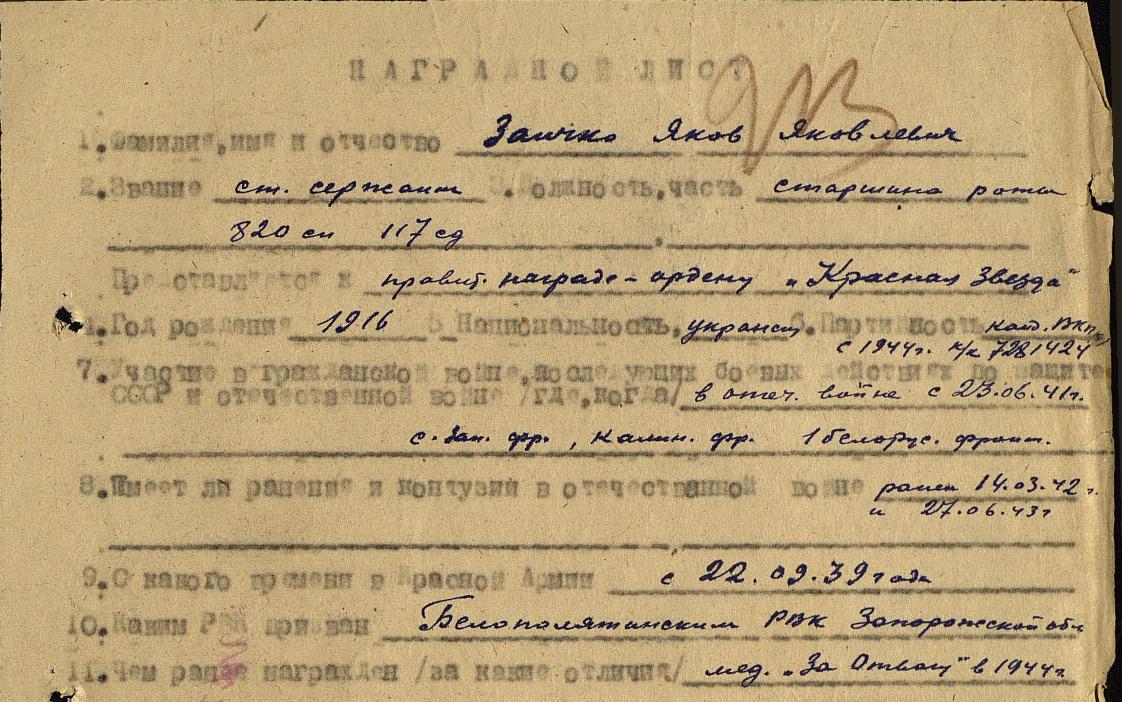 НАГРАДНОЙ ЛИСТ
1. Фамилия, имя и отчество Заичко Яков Яковлевич
2. Звание ст. сержант 3. Должность, часть старшина роты
820 сп 117 сд
Представляется к правит. награде - ордену „Красная Звезда"
4. Год рождения 1916 5 Национальность, украинец 6. Партийность канд. ВКП(б)
с 1944г. к/к 7281424
7. Участие в гражданской войне, последующих боевых действиях по защите
СССР и отечественной войне /где, когда/ в отеч. войне с 23.06.41г.
с. Зап. фр., Калин. фр. 1 белорус. фронт.
8. Имеет ли ранения и контузии в отечественной войне ранен 14.03.42г.
и 27.06.43г
9. С какого времени в Красной Армии с 22.09.39 года
10. Каким РВК призван РВК Запорожской обл
11. Чем ранее награжден /за какие отличия/ мед. „За Отвагу" в 1944г.